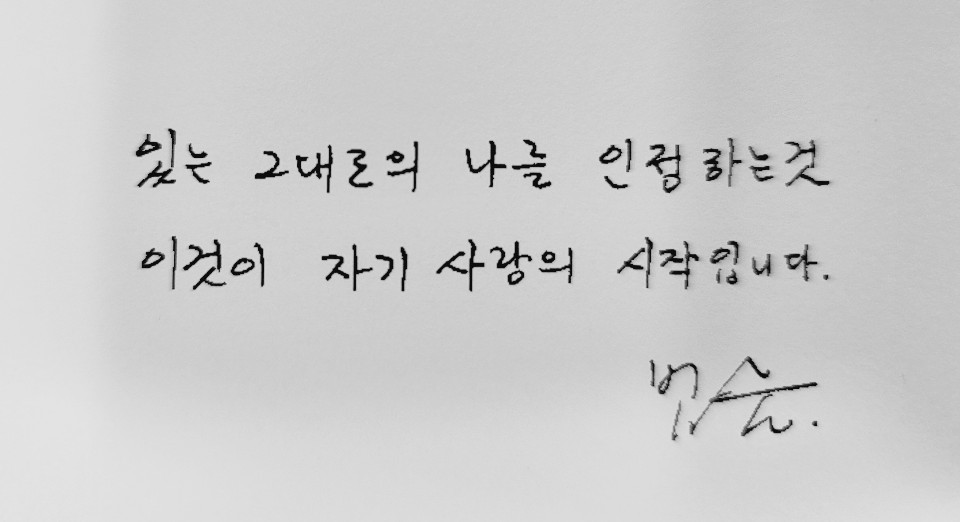 있는 그대로의 나를 인정하는것
이것이 자기 사랑의 시작입니다.
법륜.